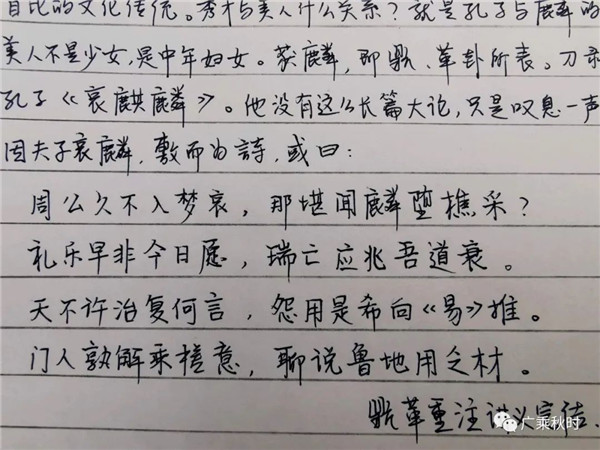 自比的文化传统。秀才与美人什么关系？就是孔子与麟的
美人不是少女，是中年妇女。获麟，即鼎、革卦所表。刀
孔子《哀麒麟》。他没有这么长篇大论，只是叹息一声
因夫子哀麟，敷而为詩，或曰：
周公久不入梦哀，那堪闻麟堕樵采？
礼乐早非今日愿，瑞亡应兆吾道衰。
天不许治复何言，怨用是希向《易》推。
门人孰解乘桴意，聊说鲁地用乏材。
鼎革重注讲义完结.
广乘秋时